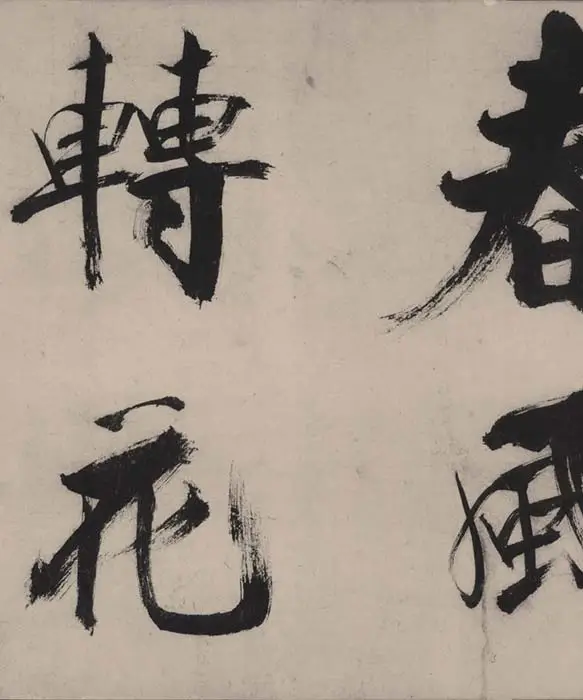 春風
轉花